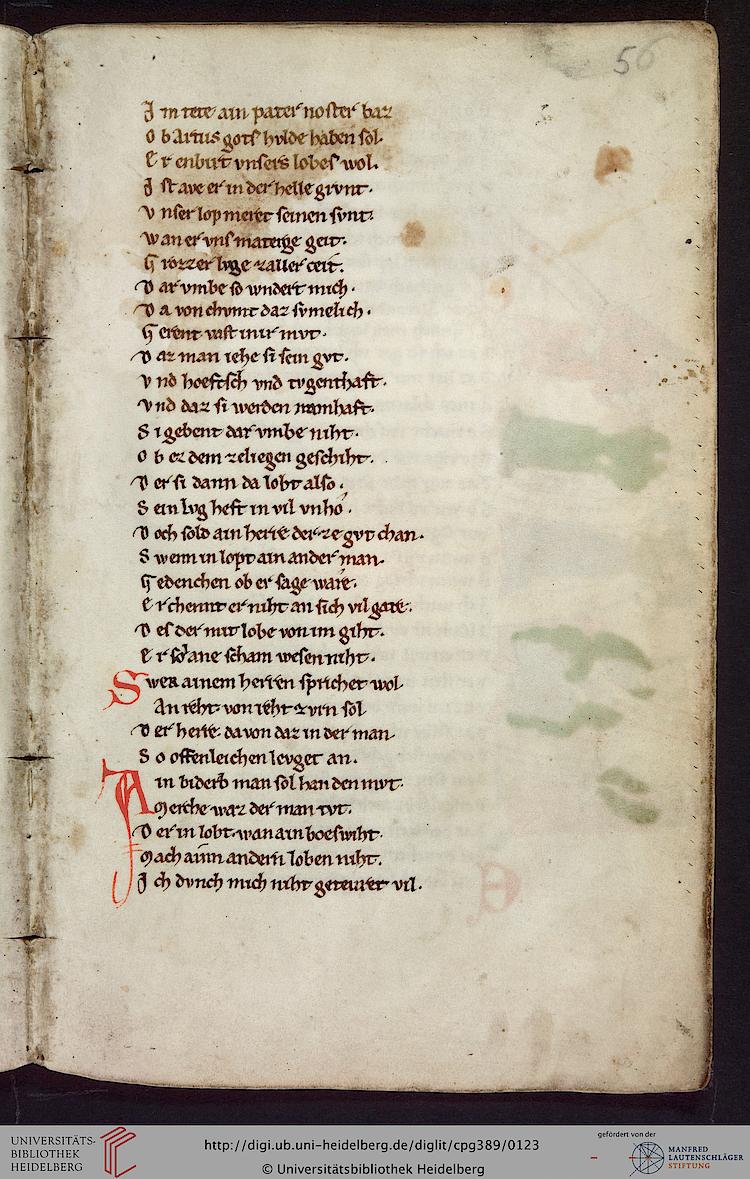 56
J m tete ain pater noster baz
O b Artus gots hvlde haben sol.
E r enbirt vnsers lobes wol.
J st ave er in der helle grvnt.
V nser lop meret seinen svnt.
W an er vns materige geit.
G rozzer lvge zaller ceit.
D ar vmbe so wndert mich.
D a von chvmt daz svmelich.
G erent vast in ir mvt.
D az man iehe si sein gvt.
V nd hoefsch vnd tvgenthaft.
V nd daz si werden namhaft.
S i gebent dar vmbe niht.
O b ez dem zeliegen geschiht.
D er si dann da lobt also.
S ein lvg heft in vil vnho.
D och sold ain herre der ze gvt chan.
S wenn in lopt ain ander man.
G edenchen ob er sage ware.
E rchennt er niht an sich vil gare.
D es der mit lobe von im giht.
E r sol ane scham wesen niht.
Swer ainem herren sprichet wol
An reht. von reht zvrn sol
D er herre. da von daz in der man
S o offenleichen levget an.
Ain biderb man sol han den mvt.
Merche waz der man tvt.
D er in lobt. wan ain boeswiht.
Mach ainn andern loben niht.
J ch dvnch mich niht getevret vil.
UNIVERSITÄTS-
BIBLIOTHEK
HEIDELBERG
http://digi.ub.uni-heidelberg.de/diglit/cpg389/0123
© Universitätsbibliothek Heidelberg
gefördert von der
MANFRED
LAUTENSCHLÄGER
STIFTUNG